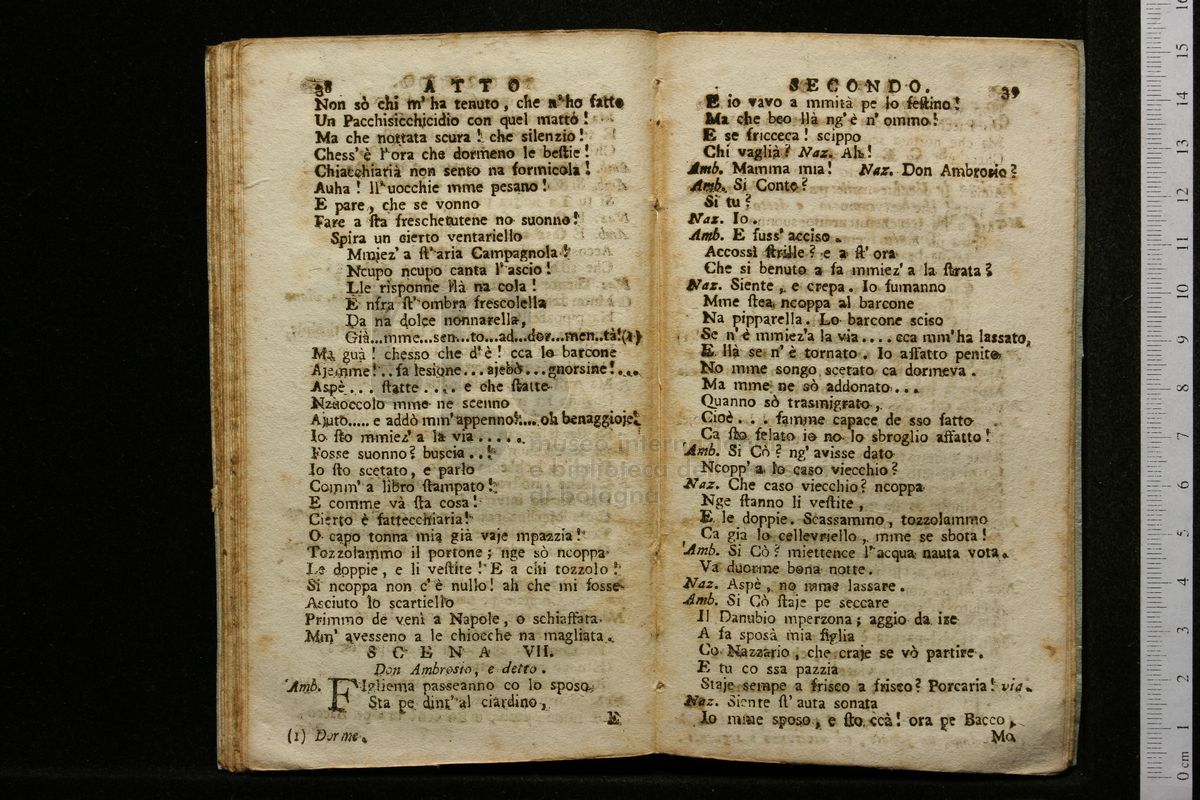 38 ATTO
Non sò chi m' ha tenuto, che n' ho fatto
Un Pacchisicchicidio con quel matto!
Ma che nottata scura! che silenzio!
Chess' è l' ora che dormeno le bestie!
Chiacchiarià non sento na formicola!
Auha! ll' uocchie mme pesano!
E pare, che se vonno
Fare a sta freschetutene no suonno!
Spira un cierto ventariello
Mmiez' a st' aria Campagnola!
Ncupo ncupo canta l' ascio!
Lle risponne llà na cola!
E nfra st' ombra frescolella
Da na dolce nonnarella,
Già...mme...sen...to...ad...dor...men..tà!(1)
Ma guà! chesso che d' è! cca lo barcone
Ajemme!..fa lesione...ajebò...gnorsine!....
Aspè... statte.... e che statte
Nzuoccolo mme ne scenno
Ajuto..... e addò mm' appenno!.... oh benaggioje!
Io sto mmiez' a la via.....
Fosse suonno? buscia..!
Io sto scetato, e parlo
Comm' a libro stampato!
E comme và sta cosa!
Cierto è fattecchiaria!
O capo tonna mia già vaje mpazzia!
Tozzolammo il portone; nge sò ncoppa
Le doppie, e li vestite! E a chi tozzolo!
Si ncoppa non c' è nullo! ah che mi fosse
Asciuto lo scartiello
Primmo de venì a Napole, o schiaffata
Mm' avesseno a le chiocche na magliata.
SCENA VII.
Don Ambrosio, e detto.
Amb. FIgliema passeanno co lo sposo
Sta pe dint' al ciardino,
E
(1) Dorme.
SECONDO. 39
E io vavo a mmità pe lo festino!
Ma che beo llà ng' è n' ommo!
E se fricceca! scippo
Chi vaglià? Naz. Ah!
Amb. Mamma mia! Naz. Don Ambrosio?
Amb. Si Conte?
Si tu?
Naz. Io.
Amb. E fuss' acciso.
Accossì strille? e a st' ora
Che si benuto a fa mmiez' a la strata?
Naz. Siente, e crepa. Io fumanno
Mme stea ncoppa al barcone
Na pipparella. Lo barcone sciso
Se n' è mmiez'a la via.... cca mm' ha lassato,
E llà se n' è tornato. Io affatto penito
No mme songo scetato ca dormeva.
Ma mme ne sò addonato...
Quanno sò trasmigrato,
Cioè... famme capace de sso fatto
Ca sto felato io no lo sbroglio affatto!
Amb. Si Cò? ng' avisse dato
Ncopp' a lo caso viecchio?
Naz. Che caso viecchio? ncoppa
Nge stanno li vestite,
E le doppie. Scassammo, tozzolammo
Ca gia lo cellevriello, mme se sbota!
Amb. Si Cò? miettence l' acqua nauta vota.
Va duorme bona notte.
Naz. Aspè, no mme lassare.
Amb. Si Cò staje pe seccare
Il Danubio mperzona; aggio da ire
A fa sposà mia figlia
Co Nazzario, che craje se vò partire.
E tu co ssa pazzia
Staje sempe a frisco a frisco? Porcaria! via.
Naz. Siente st' auta sonata
Io mme sposo, e sto ccà! ora pe Bacco,
Mo